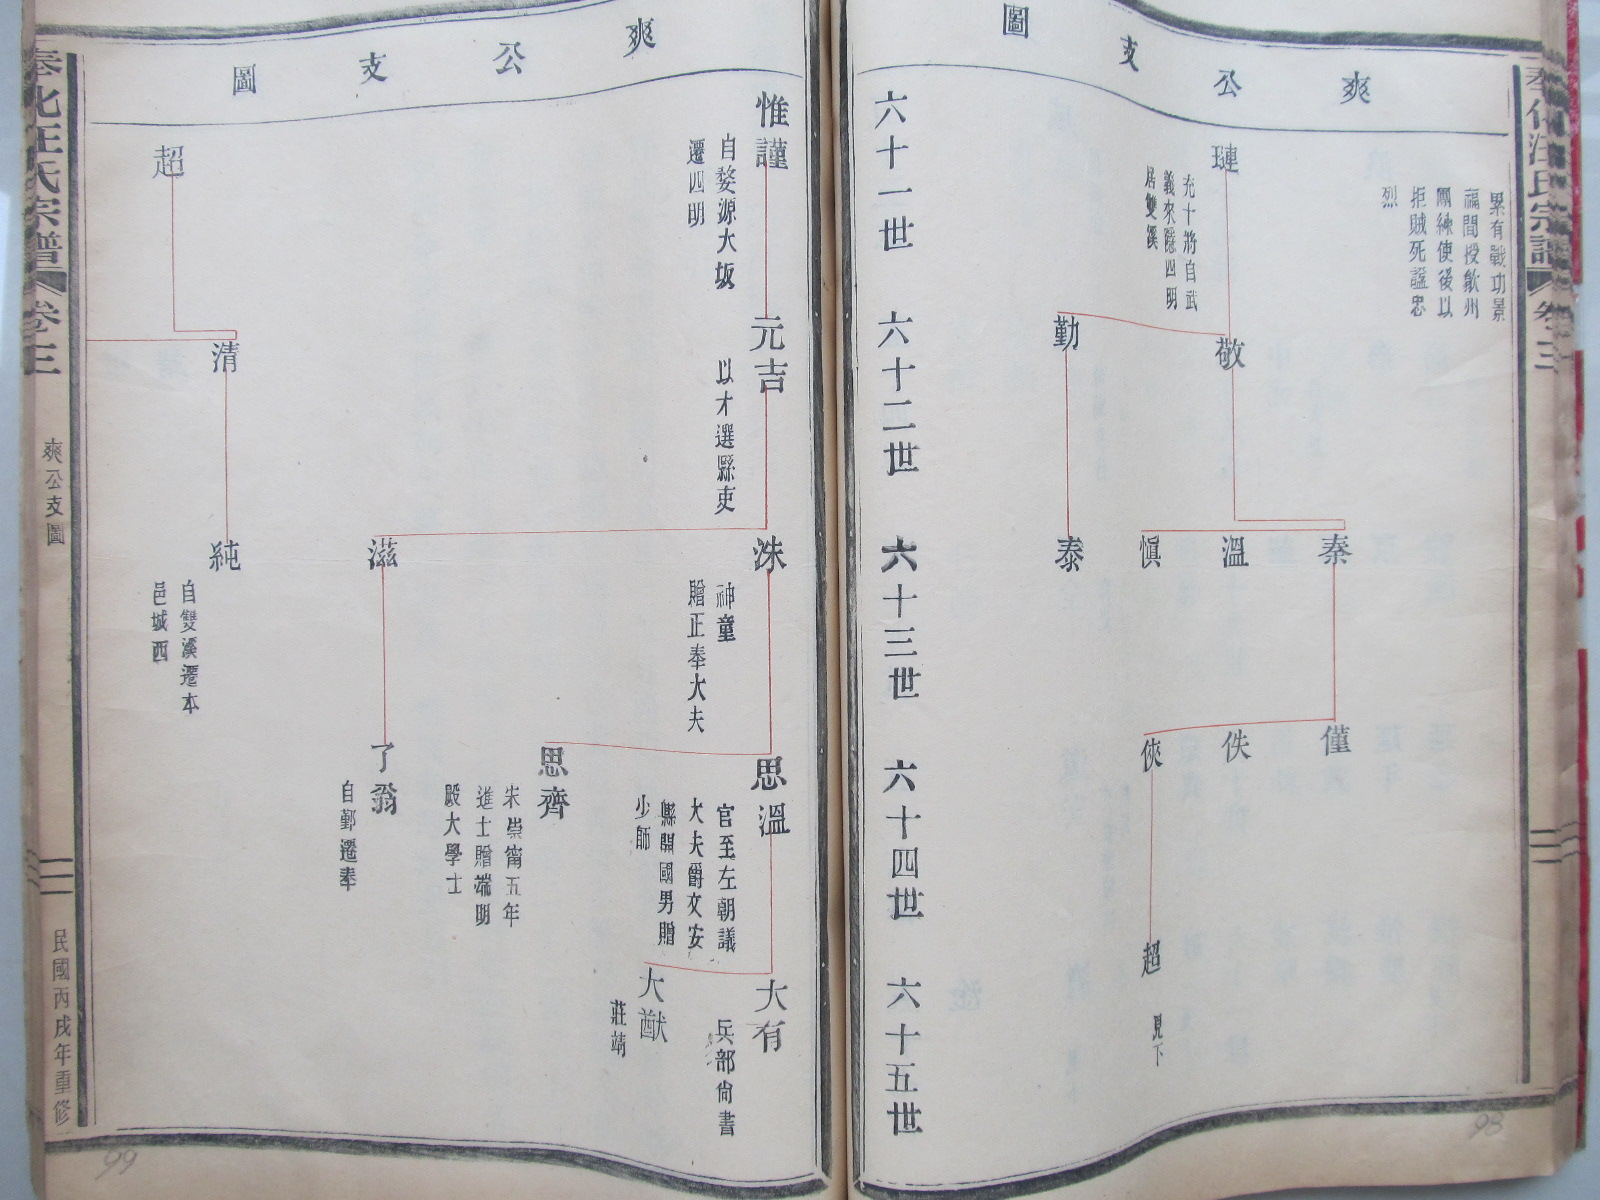 奉化汪氏宗譜 卷三
爽公支圖
累有戰功景
福間授歙州
團練使後以
拒賊死諡忠
烈
璉
充十將自武
義來隱四明
居雙溪
敬
勤
秦
溫
愼
泰
僅
佚
俠
超
見下
六十一世
六十二世
六十三世
六十四世
六十五世
98
爽公支圖
惟謹
自婺源大坂
遷四明
元吉
以才選縣吏
洙
神童
贈正奉大夫
滋
思溫
官至左朝議
大夫爵文安
縣開國男贈
少師
思齊
宋崇甯五年
進士贈端明
殿大學士
了翁
自鄞遷奉
大有
兵部尙書
大猷
莊靖
超
清
純
自雙溪遷本
邑城西
奉化汪氏宗譜 卷三
爽公支圖
民國丙戌年重修
99